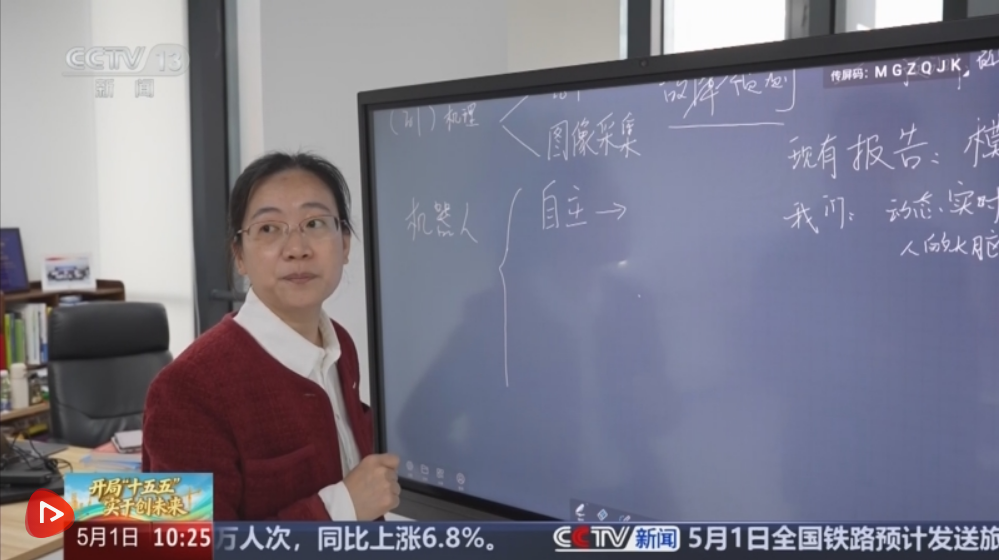 CCTV 13
新闻
传屏码：MGZQJK
故障预测
(时)机理
图像采集
现有报告：模
机器人
自主→
我们：动态、实时
人的大脑
开局“十五五”
实干创未来
5月1日 10:25
万人次，同比上涨6.8%。 CCTV新闻 5月1日全国铁路预计发送旅